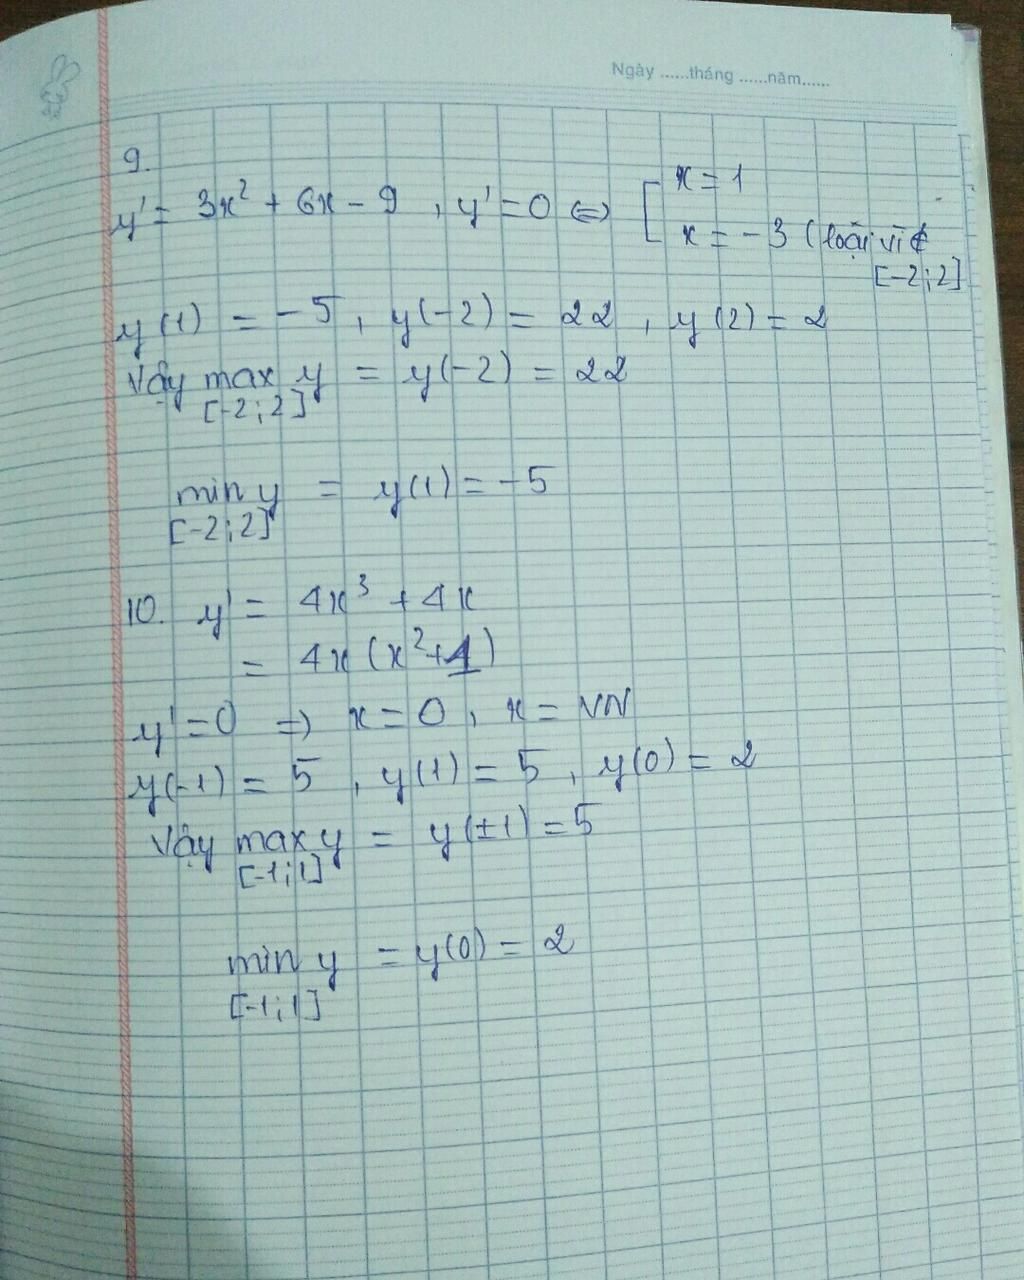 Ngày ......tháng ......năm......
9.
y' = 3x² + 6x - 9 , y' = 0 ⇔ [ x = 1
x = -3 (loại vì ∉
[-2;2]
y(1) = -5 , y(-2) = 22 , y(2) = 2
Vậy max y = y(-2) = 22
[-2;2]
min y = y(1) = -5
[-2;2]
10. y' = 4x³ + 4x
= 4x (x²+1)
y' = 0 => x = 0 , x = VN
y(-1) = 5 , y(1) = 5 , y(0) = 2
Vậy max y = y(±1) = 5
[-1;1]
min y = y(0) = 2
[-1;1]